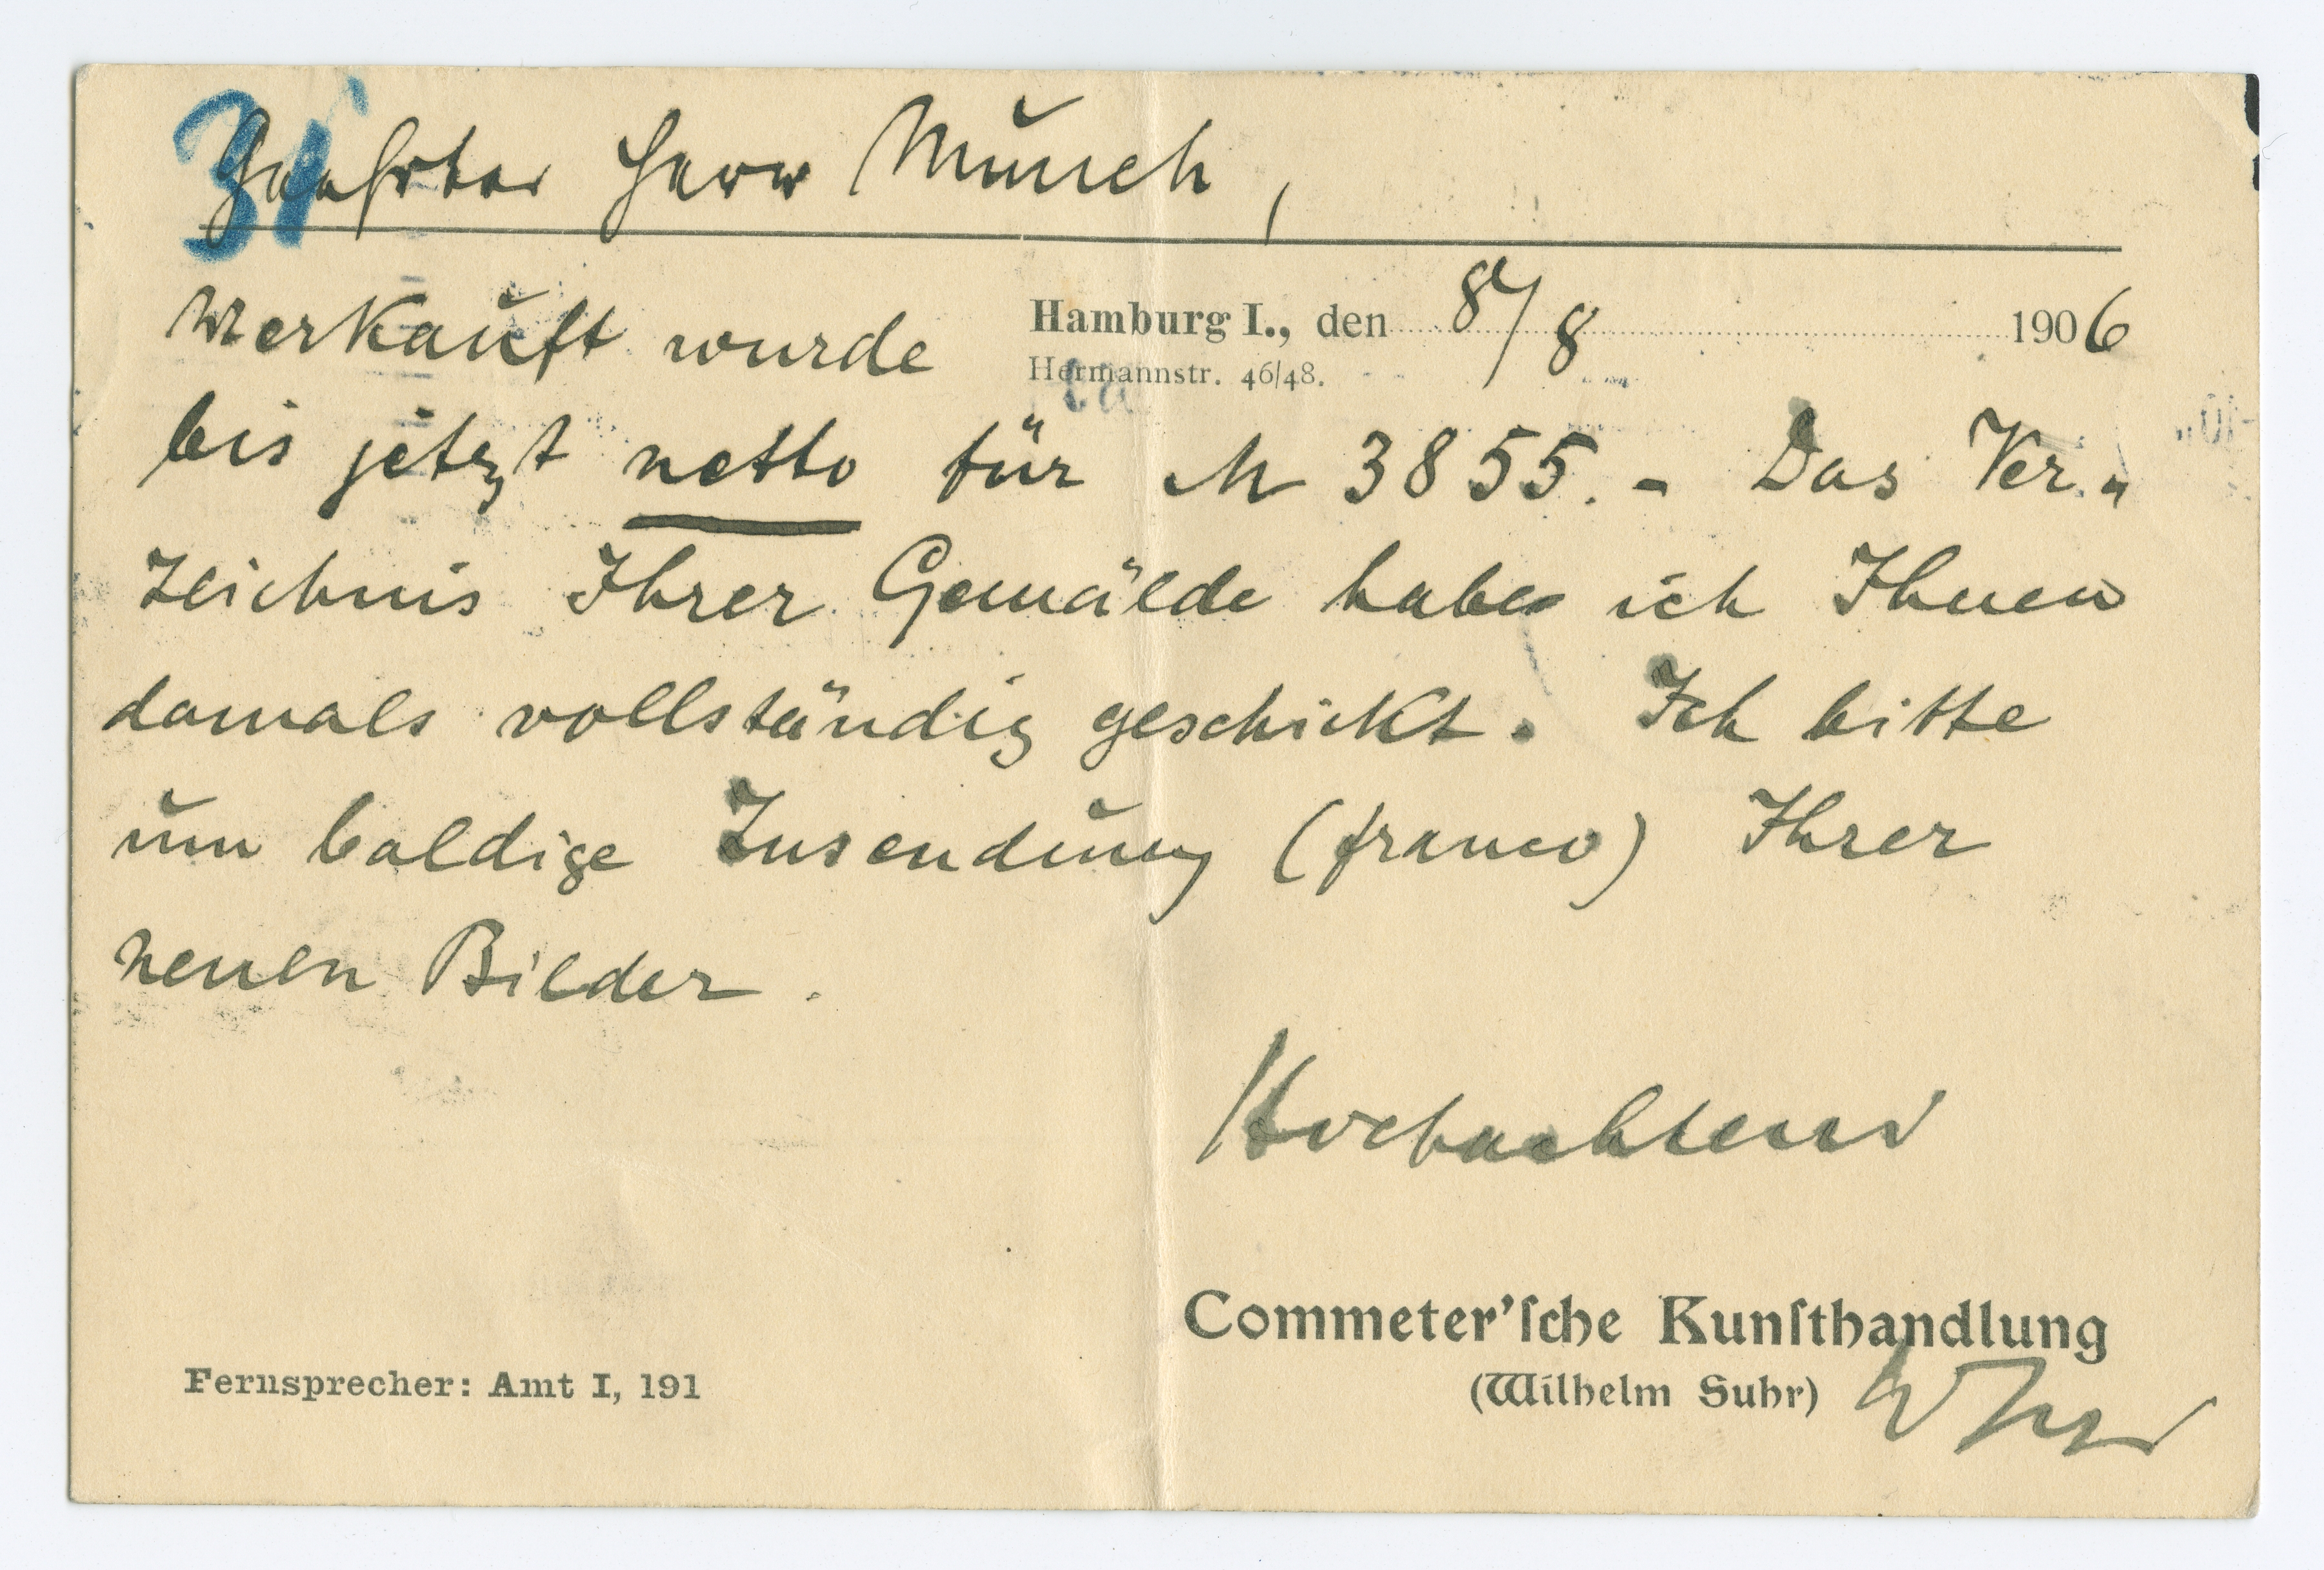 31
Geehrter Herr Munch,
Hamburg I., den 8/8 1906
Hermannstr. 46/48.
verkauft wurde
bis jetzt netto für M 3855.- Das Ver-
zeichnis Ihrer Gemälde habe ich Ihnen
damals vollständig geschickt. Ich bitte
um baldige Zusendung (franco) Ihrer
neuen Bilder.
Hochachtend
Commeter'sche Kunsthandlung
(Wilhelm Suhr)
Fernsprecher: Amt I, 191